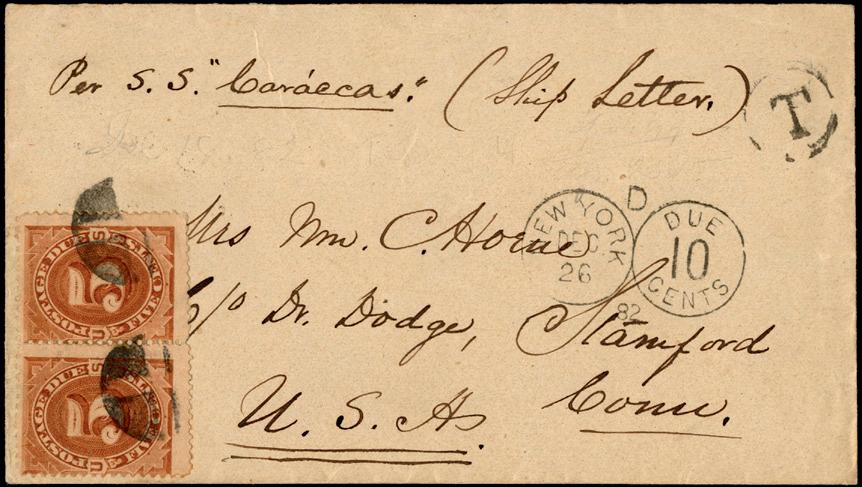 Per S. S. "Caráecas." (Ship Letter.)
T
Mrs Wm. C. Horne
C/o Dr. Dodge, Stamford
Conn.
U. S. A.
NEW YORK
DEC
26
82
D
DUE
10
CENTS
POSTAGE DUE
5
FIVE CENTS
U S
POSTAGE DUE
5
FIVE CENTS
U S